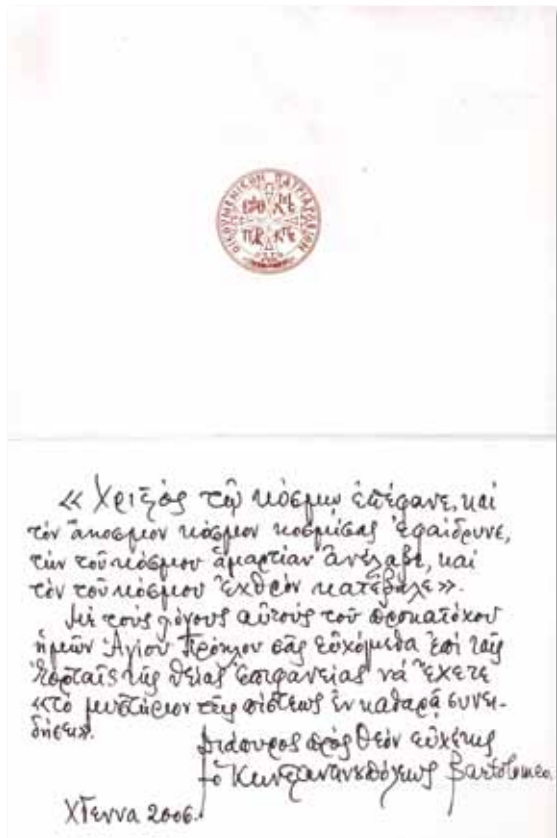 ΟΙΚΟΥΜΕΝΙΚΟΝ ΠΑΤΡΙΑΡΧΕΙΟΝ
« Χριστὸς τῷ κόσμῳ ἐπέφανε, καὶ
τὸν ἄκοσμον κόσμον κοσμήσας ἐφαίδρυνε,
τὴν τοῦ κόσμου ἁμαρτίαν ἀνέλαβε, καὶ
τὸν τοῦ κόσμου ἐχθρὸν κατέβαλε».
Μὲ τοὺς λόγους αὐτοὺς τοῦ προκατόχου
ἡμῶν Ἁγίου Πρόκλου σᾶς εὐχόμεθα ἐπὶ ταῖς
ἑορταῖς τῆς θείας ἐπιφανείας νὰ ἔχετε
«τὸ μυστήριον τῆς πίστεως ἐν καθαρᾷ συνει-
δήσει».
διάπυρος πρὸς Θεὸν εὐχέτης
ὁ Κωνσταντινουπόλεως Bartolomeo.
ΧΓεννα 2006.